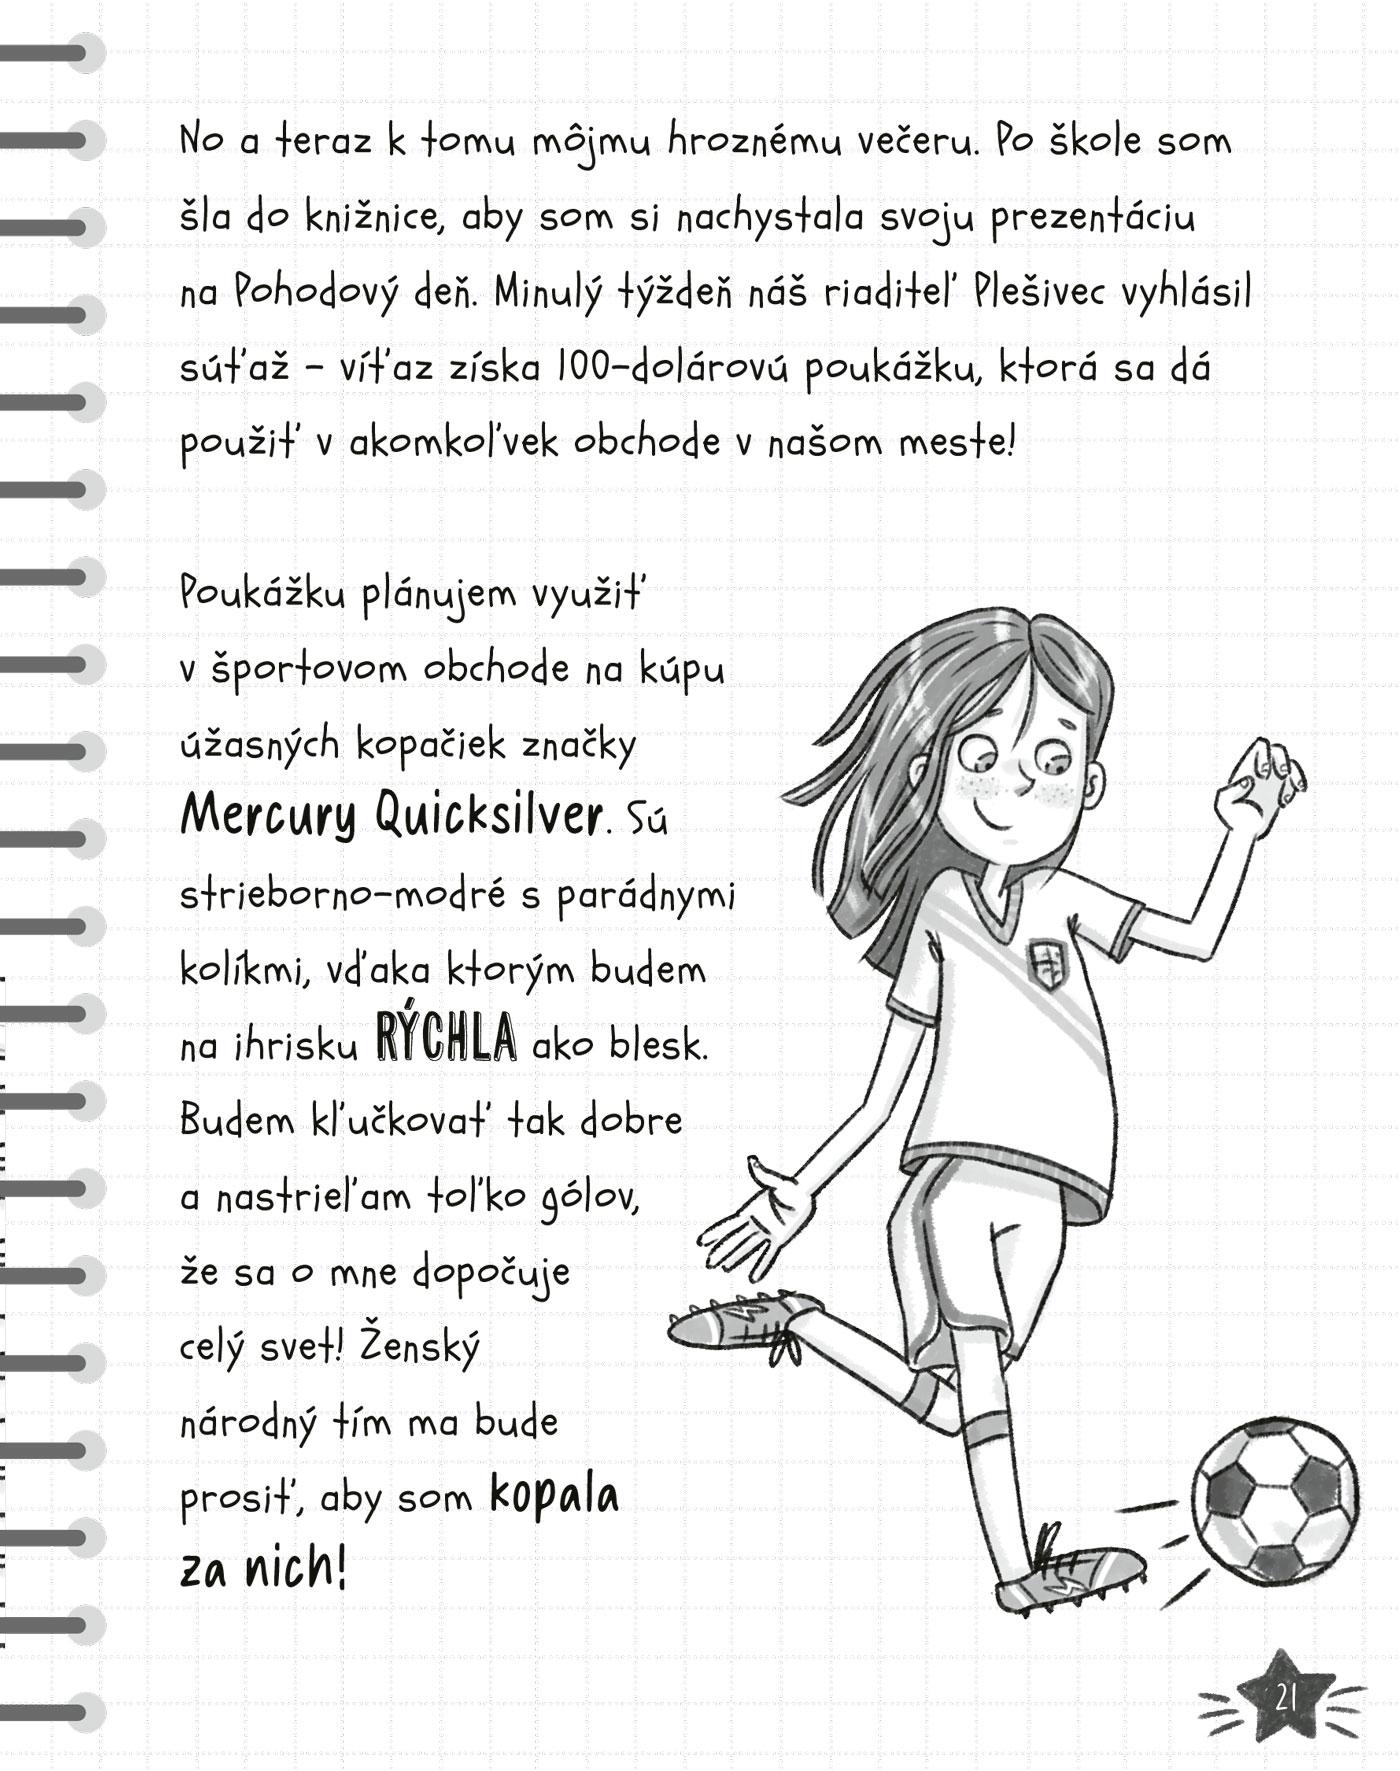 No a teraz k tomu môjmu hroznému večeru. Po škole som
šla do knižnice, aby som si nachystala svoju prezentáciu
na Pohodový deň. Minulý týždeň náš riaditeľ Plešivec vyhlásil
súťaž – víťaz získa 100-dolárovú poukážku, ktorá sa dá
použiť v akomkoľvek obchode v našom meste!
Poukážku plánujem využiť
v športovom obchode na kúpu
úžasných kopačiek značky
Mercury Quicksilver. Sú
strieborno-modré s parádnymi
kolíkmi, vďaka ktorým budem
na ihrisku RÝCHLA ako blesk.
Budem kľučkovať tak dobre
a nastrieľam toľko gólov,
že sa o mne dopočuje
celý svet! Ženský
národný tím ma bude
prosiť, aby som kopala
za nich!
21